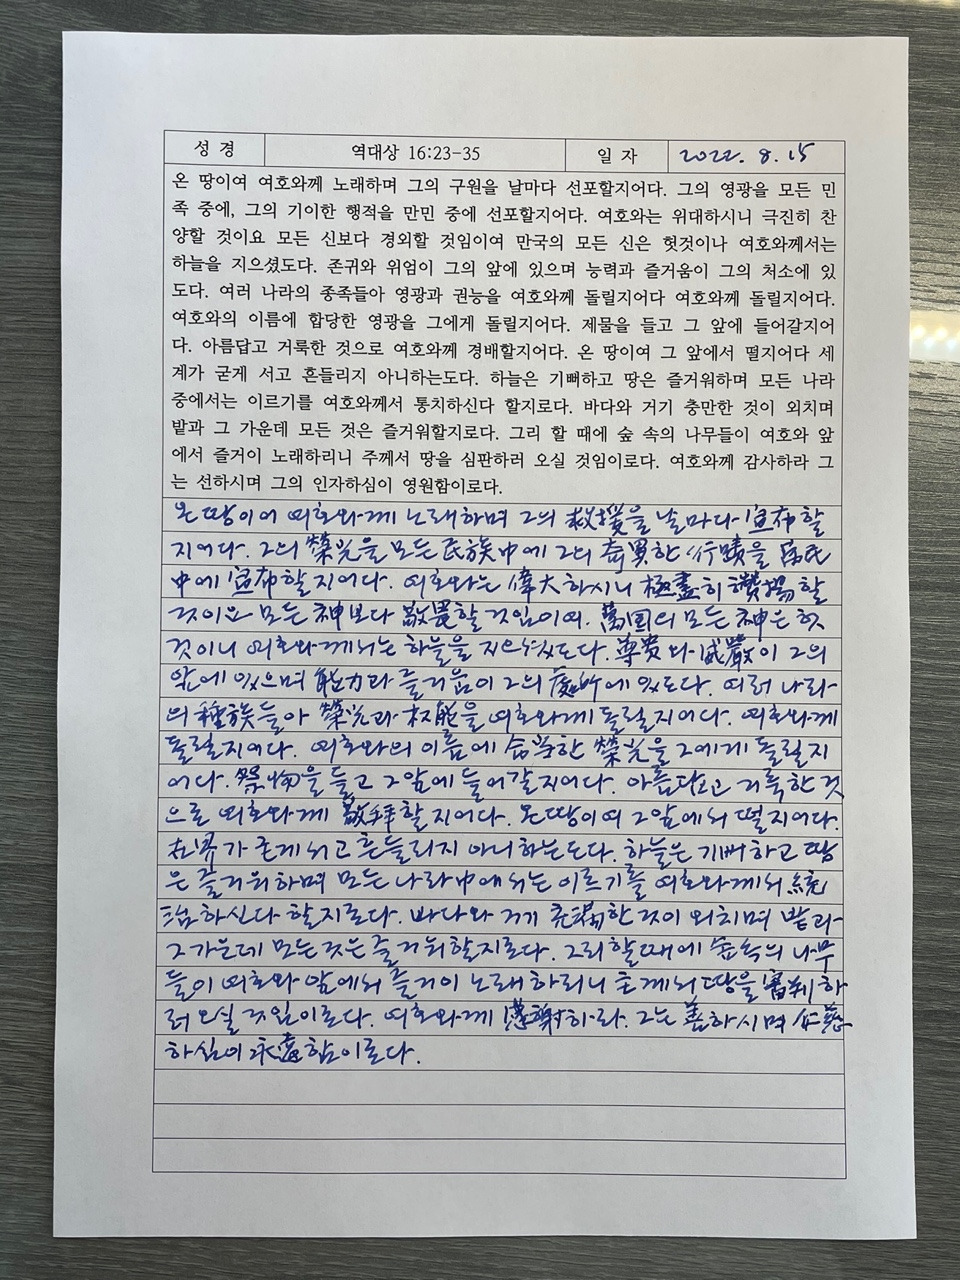 성 경 역대상 16:23-35 일 자 2022. 8. 15
온 땅이여 여호와께 노래하며 그의 구원을 날마다 선포할지어다. 그의 영광을 모든 민
족 중에, 그의 기이한 행적을 만민 중에 선포할지어다. 여호와는 위대하시니 극진히 찬
양할 것이요 모든 신보다 경외할 것임이여 만국의 모든 신은 헛것이나 여호와께서는
하늘을 지으셨도다. 존귀와 위엄이 그의 앞에 있으며 능력과 즐거움이 그의 처소에 있
도다. 여러 나라의 종족들아 영광과 권능을 여호와께 돌릴지어다 여호와께 돌릴지어다.
여호와의 이름에 합당한 영광을 그에게 돌릴지어다. 제물을 들고 그 앞에 들어갈지어
다. 아름답고 거룩한 것으로 여호와께 경배할지어다. 온 땅이여 그 앞에서 떨지어다 세
계가 굳게 서고 흔들리지 아니하는도다. 하늘은 기뻐하고 땅은 즐거워하며 모든 나라
중에서는 이르기를 여호와께서 통치하신다 할지로다. 바다와 거기 충만한 것이 외치며
밭과 그 가운데 모든 것은 즐거워할지로다. 그리 할 때에 숲 속의 나무들이 여호와 앞
에서 즐거이 노래하리니 주께서 땅을 심판하러 오실 것임이로다. 여호와께 감사하라 그
는 선하시며 그의 인자하심이 영원함이로다.
온 땅이여 여호와께 노래하며 그의 救援을 날마다 宣布할
지어다. 그의 榮光을 모든 民族 中에 그의 奇異한 行蹟을 萬民
中에 宣布할지어다. 여호와는 偉大하시니 極盡히 讚揚할
것이요 모든 神보다 敬畏할 것임이여. 萬國의 모든 神은 헛
것이나 여호와께서는 하늘을 지으셨도다. 尊貴와 威嚴이 그의
앞에 있으며 能力과 즐거움이 그의 處所에 있도다. 여러 나라
의 種族들아 榮光과 권能을 여호와께 돌릴지어다. 여호와께
돌릴지어다. 여호와의 이름에 合當한 榮光을 그에게 돌릴지
어다. 祭物을 들고 그 앞에 들어갈지어다. 아름답고 거룩한 것
으로 여호와께 敬拜할지어다. 온 땅이여 그 앞에서 떨지어다.
世界가 굳게 서고 흔들리지 아니하는도다. 하늘은 기뻐하고 땅
은 즐거워하며 모든 나라 中에서는 이르기를 여호와께서 統
治하신다 할지로다. 바다와 거기 充滿한 것이 외치며 밭과
그 가운데 모든 것은 즐거워할지로다. 그리 할 때에 숲 속의 나무
들이 여호와 앞에서 즐거이 노래하리니 주께서 땅을 審判하
러 오실 것임이로다. 여호와께 感謝하라. 그는 善하시며 仁慈
하심이 永遠함이로다.